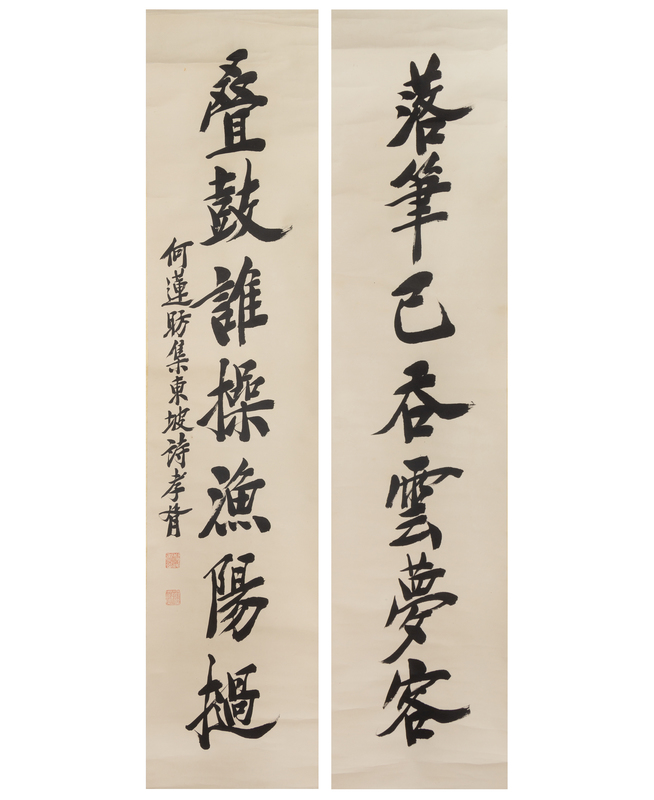 落筆已吞雲夢客
叠鼓誰操漁陽撾
何蓮昉集東坡詩孝胥